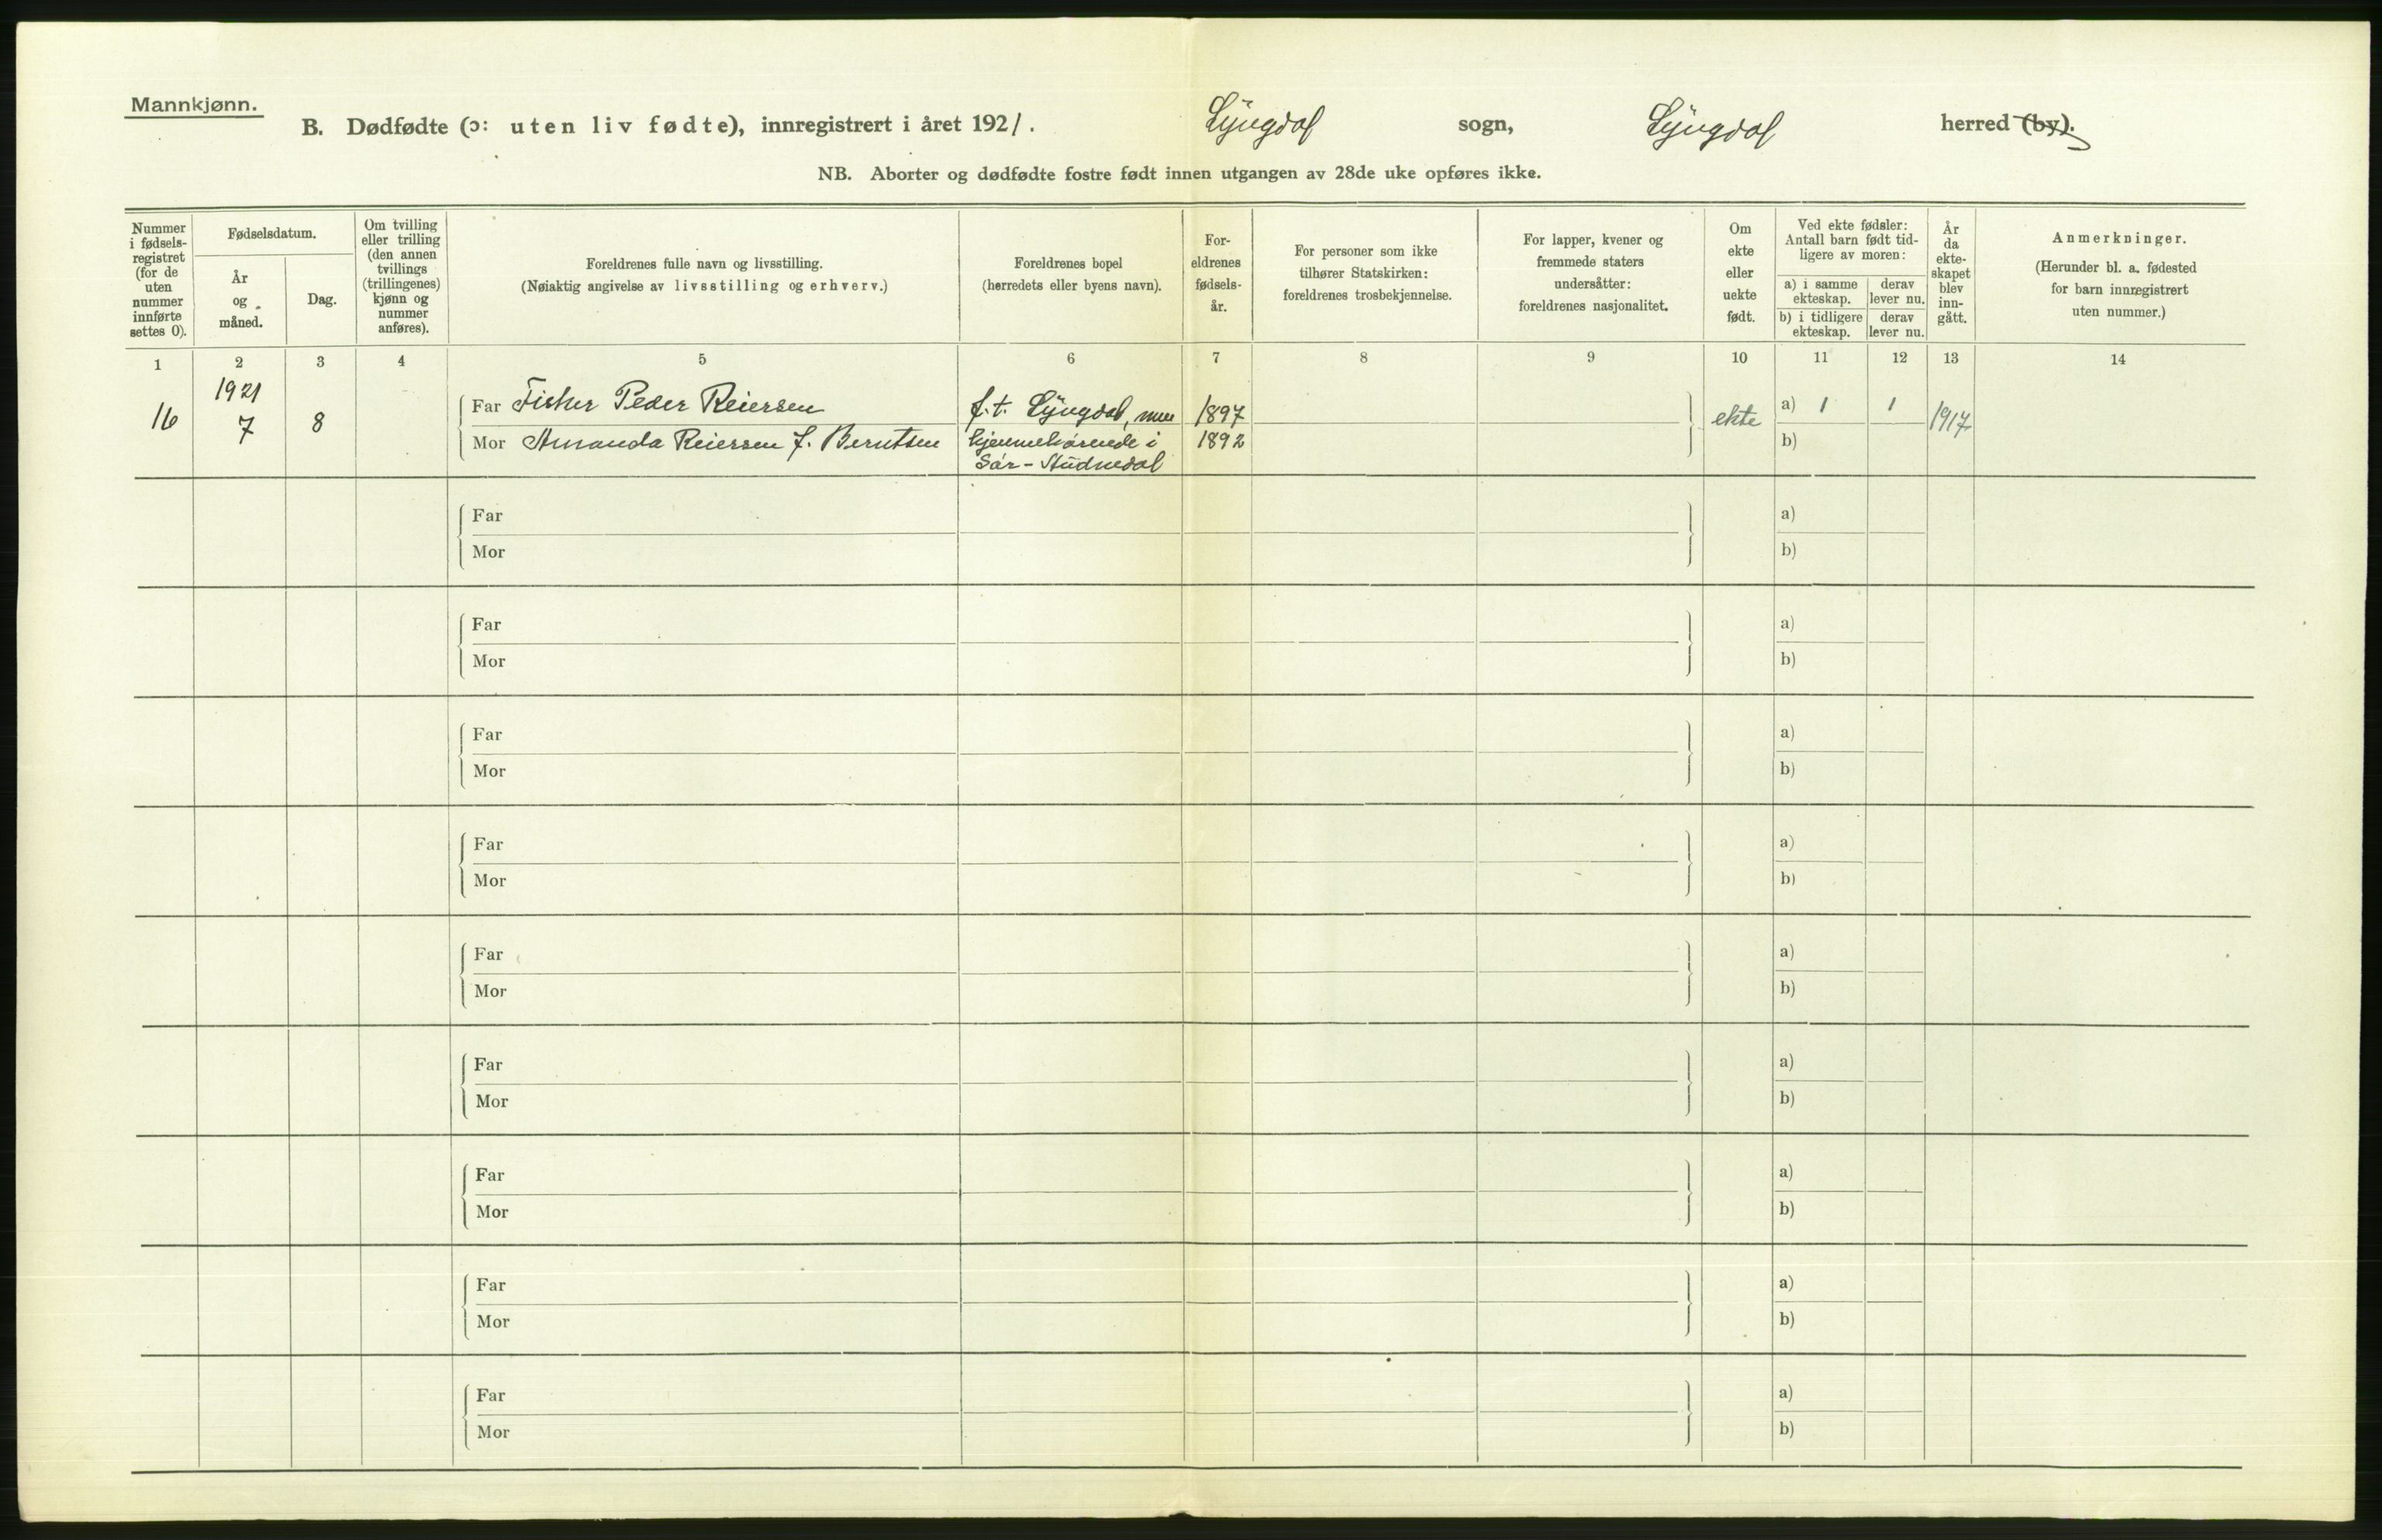 Mannkjønn.
B. Dødfødte (ɔ: uten liv fødte), innregistrert i året 1921. Lyngdal sogn, Lyngdal herred (by).
NB. Aborter og dødfødte fostre født innen utgangen av 28de uke opføres ikke.
Nummer i fødsels-registret (for de uten nummer innførte settes 0).
Fødselsdatum.
År og måned.
Dag.
Om tvilling eller trilling (den annen tvillings (trillingenes) kjønn og nummer anføres).
Foreldrenes fulle navn og livsstilling.
(Nøiaktig angivelse av livsstilling og erhverv.)
Foreldrenes bopel
(herredets eller byens navn).
For-eldrenes fødsels-år.
For personer som ikke tilhører Statskirken: foreldrenes trosbekjennelse.
For lapper, kvener og fremmede staters undersåtter: foreldrenes nasjonalitet.
Om ekte eller uekte født.
Ved ekte fødsler: Antall barn født tid-ligere av moren:
a) i samme ekteskap.
derav lever nu.
b) i tidligere ekteskap.
derav lever nu.
År da ekte-skapet blev inn-gått.
Anmerkninger.
(Herunder bl. a. fødested for barn innregistrert uten nummer.)
1 2 3 4 5 6 7 8 9 10 11 12 13 14
1921
16 7 8
Far Fisker Peder Reiersen f.t. Lyngdal, men 1897 ekte a) 1 1 1917
Mor Amanda Reiersen f. Berntsen hjemmehørende i 1892 b)
Sør-Audnedal
Far a)
Mor b)
Far a)
Mor b)
Far a)
Mor b)
Far a)
Mor b)
Far a)
Mor b)
Far a)
Mor b)
Far a)
Mor b)
Far a)
Mor b)
Far a)
Mor b)